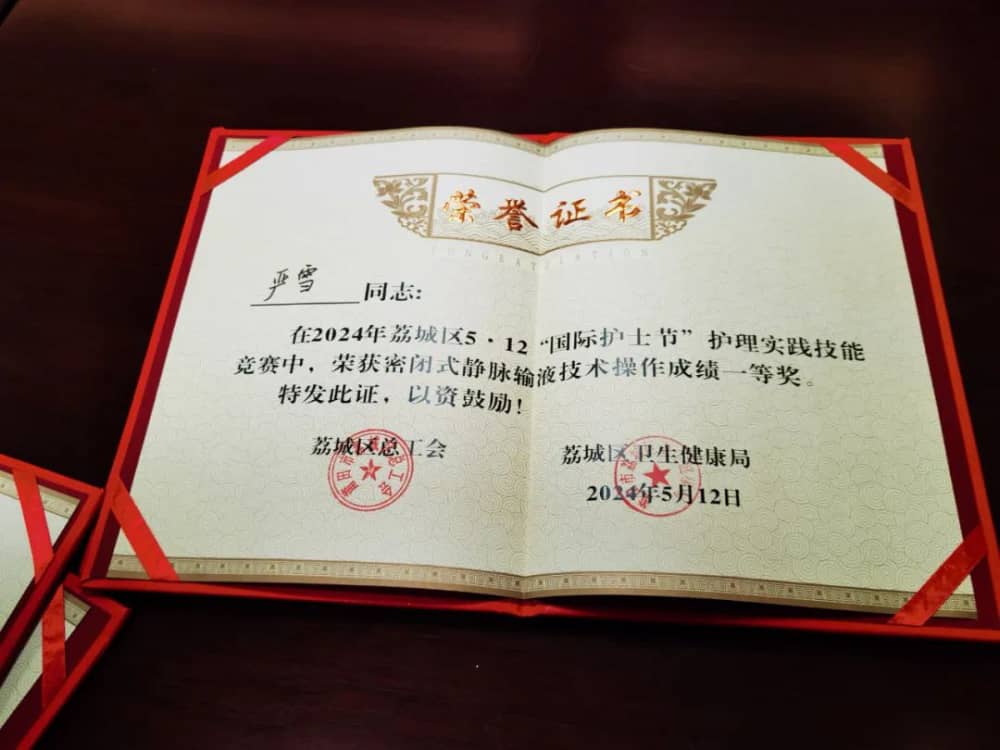 荣誉证书
CONGRATULATION
严雪 同志:
在2024年荔城区5·12“国际护士节”护理实践技能
竞赛中，荣获密闭式静脉输液技术操作成绩一等奖。
特发此证，以资鼓励！
荔城区总工会
荔城区卫生健康局
2024年5月12日